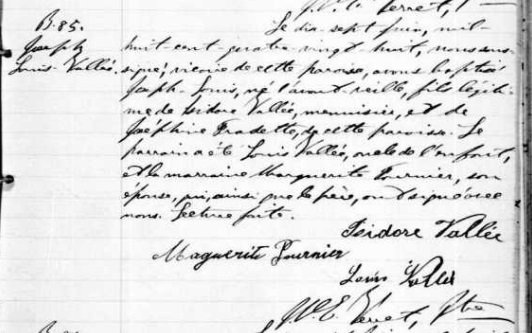 B. 85.
Joseph
Louis Vallée.
Le dix-sept juin, mil-
huit-cent-quatre-vingt huit, nous sous-
signé, vicaire de cette paroisse, avons baptisé
Joseph Louis, né l'avant-veille, fils légiti-
me de Isidore Vallée, menuisier, et de
Joséphine Fradette, de cette paroisse. Le
parrain a été Louis Vallée, oncle de l'enfant,
et la marraine Marguerite Fournier, son
épouse, qui, ainsi que le père, ont signé avec
nous. Lecture faite.
Isidore Vallée
Maguerite Fournier
Louis Vallée
Ptre